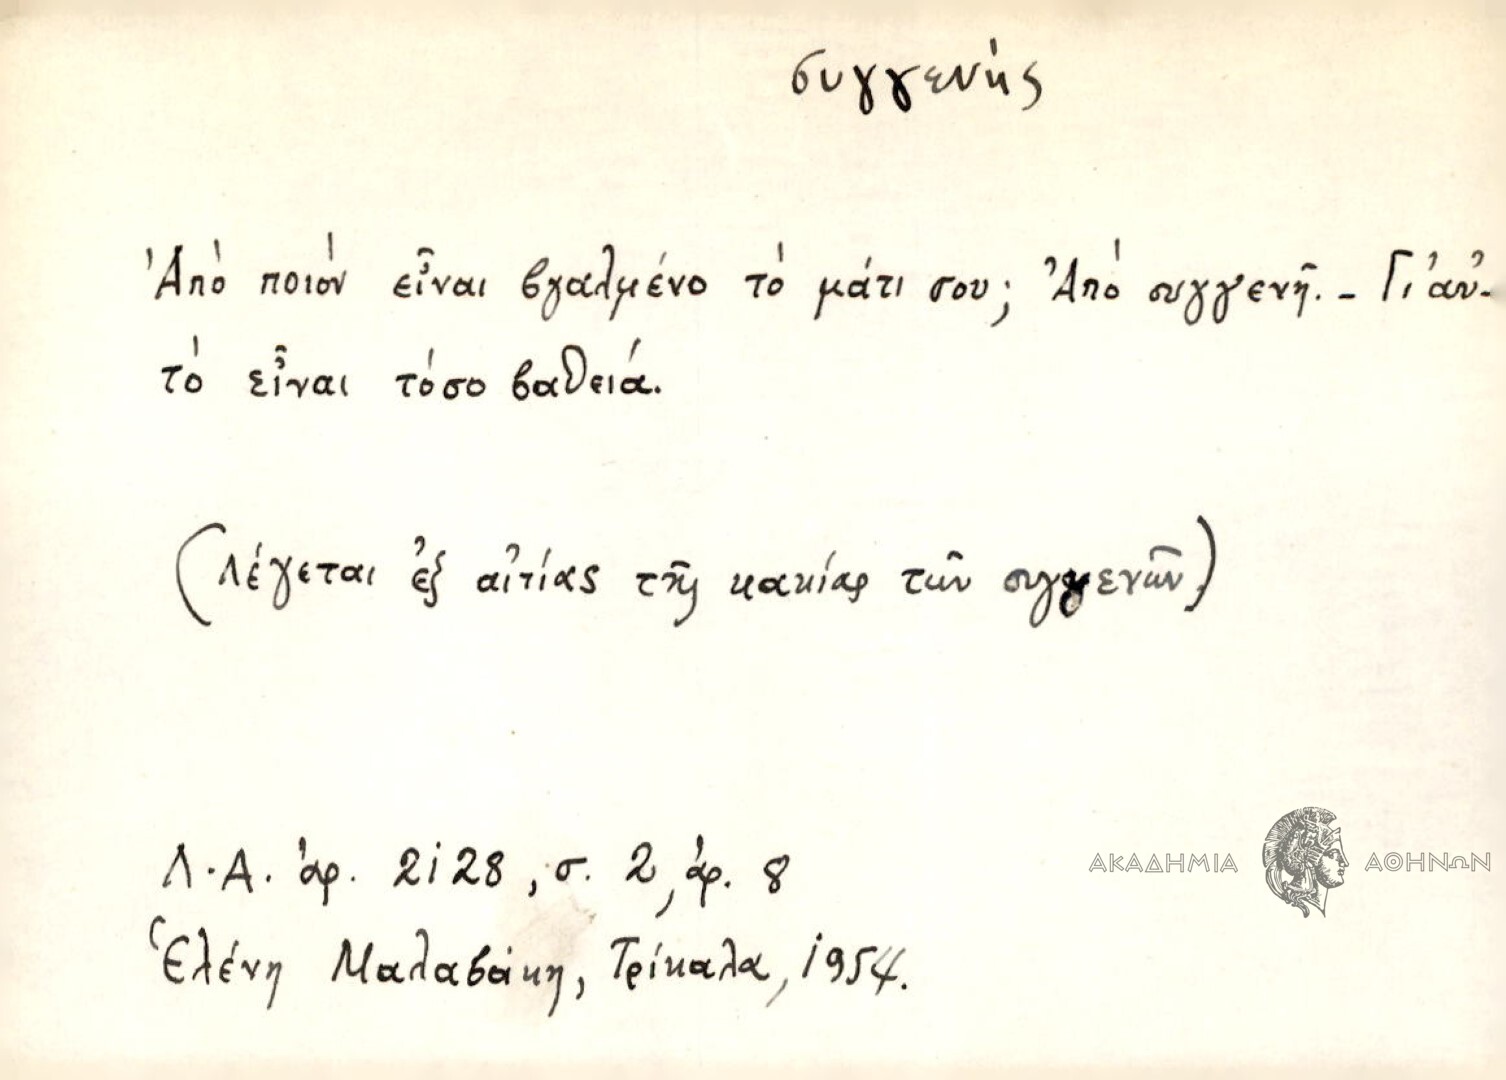 συγγενής
Ἀπὸ ποιὸν εἶναι βγαλμένο τὸ μάτι σου; Ἀπὸ συγγενῆ. - Γι' αὐ-
τὸ εἶναι τόσο βαθειά.
(Λέγεται ἐξ αἰτίας τῆς κακίας τῶν συγγενῶν)
Λ.Α. ἀρ. 2128, σ. 2, ἀρ. 8
Ἑλένη Μαλαβάκη, Τρίκαλα, 1954.
ΑΚΑΔΗΜΙΑ ΑΘΗΝΩΝ